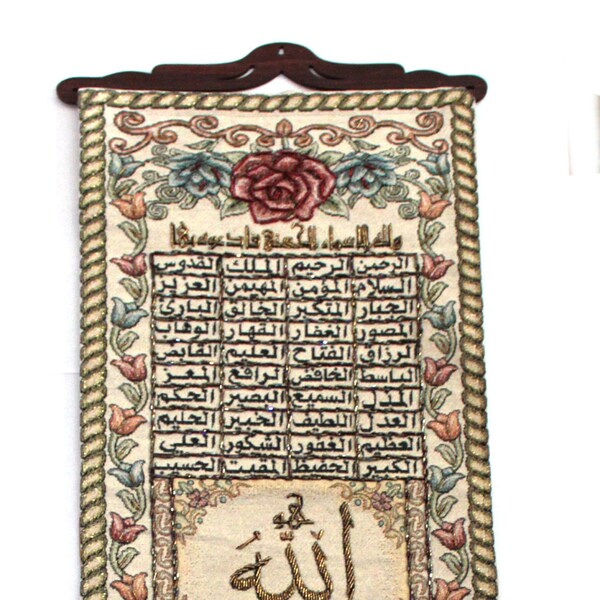 ولله الاسماء الحسنى فادعوه بها
الرحمن الرحيم الملك القدوس
السلام المؤمن المهيمن العزيز
الجبار المتكبر الخالق البارئ
المصور الغفار القهار الوهاب
الرزاق الفتاح العليم القابض
الباسط الخافض الرافع المعز
المذل السميع البصير الحكم
العدل اللطيف الخبير الحليم
العظيم الغفور الشكور العلي
الكبير الحفيظ المقيت الحسيب
الله